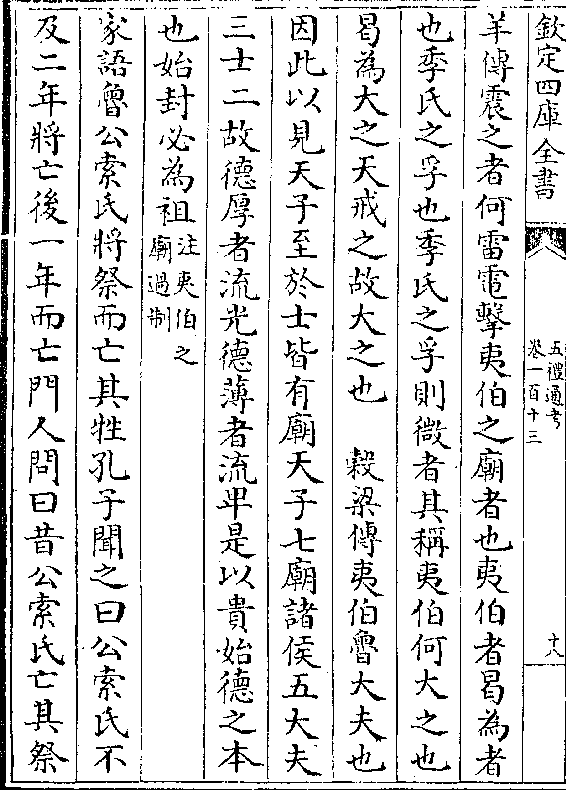 欽定四庫全書
五禮通考
卷一百十三
十八
羊傳震之者何雷電擊夷伯之廟者也夷伯者曷為者
也季氏之孚也季氏之孚則微者其稱夷伯何大之也
曷為大之天戒之故大之也　穀梁傳夷伯魯大夫也
因此以見天子至於士皆有廟天子七廟諸侯五大夫
三士二故德厚者流光德薄者流卑是以貴始德之本
也始封必為祖注夷伯之廟過制
家語魯公索氏將祭而亡其牲孔子聞之曰公索氏不
及二年將亡後一年而亡門人問曰昔公索氏亡其祭